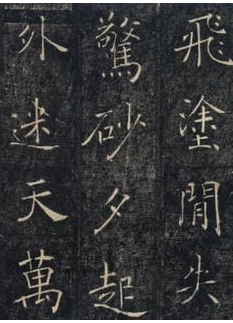 飛塗閒失
驚砂夕起
外迷天萬